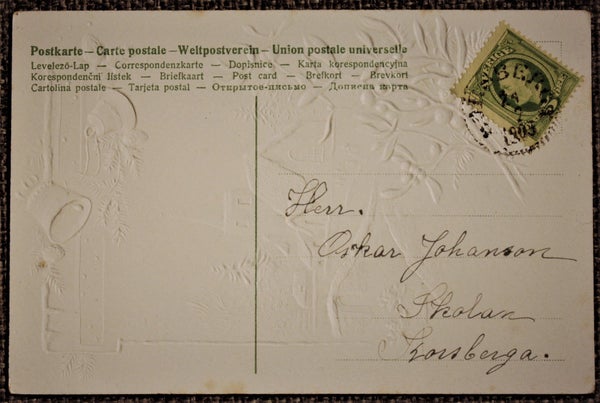 Postkarte – Carte postale – Weltpostverein – Union postale universelle
Levelező-Lap – Correspondenzkarte – Dopisnice – Karta korespondencyjna
Korespondenční lístek – Briefkaart – Post card – Brefkort – Brevkort
Cartolina postale – Tarjeta postal – Открытое-письмо – Дописна карта
SVERIGE
1905
Herr.
Oskar Johanson
Skolan
Korsberga.